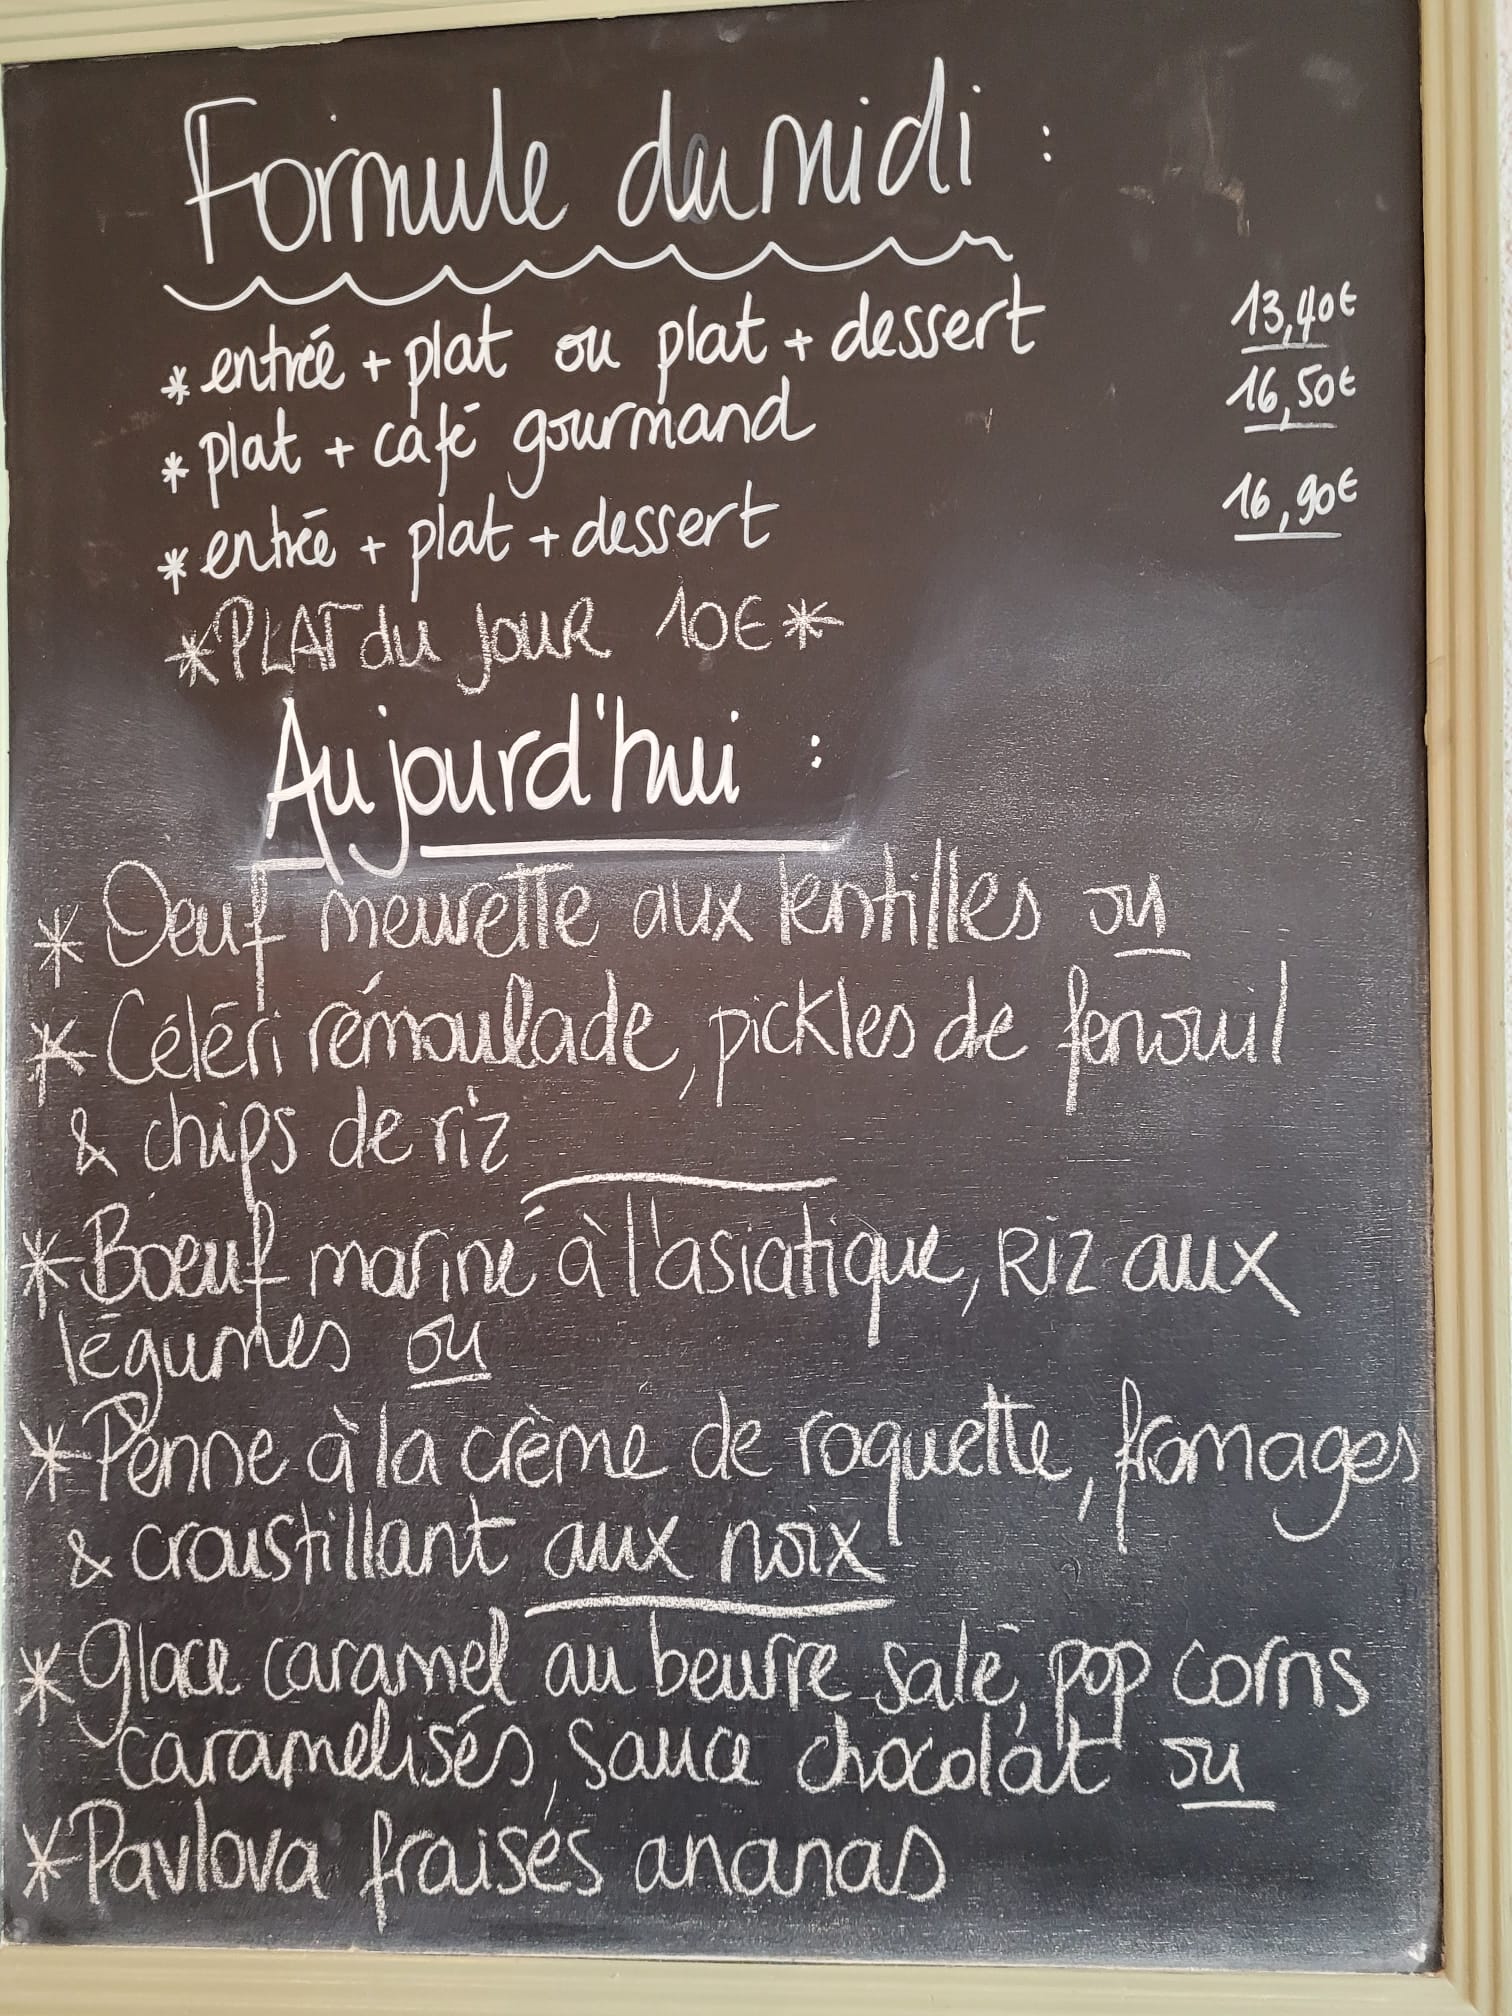 Formule du midi :
* entrée + plat ou plat + dessert 13,40€
* plat + café gourmand 16,50€
* entrée + plat + dessert 16,90€
* PLAT du jour 10€ *
Aujourd'hui :
* Oeuf meurette aux lentilles ou
* Céléri rémoulade, pickles de fenouil
& chips de riz
* Boeuf mariné à l'asiatique, Riz aux
légumes ou
* Penne à la crème de roquette, fromages
& croustillant aux noix
* Glace caramel au beurre salé, pop corns
caramélisés, sauce chocolat ou
* Pavlova fraises ananas